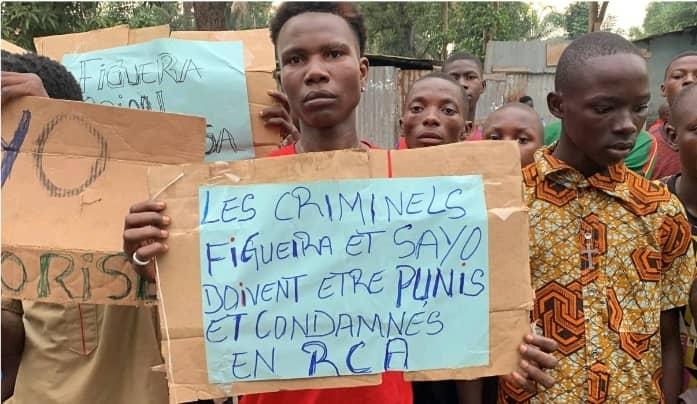 FIGUERA
YO
ORISE
LES CRIMINELS
FIGUEIRA ET SAYO
DOIVENT ETRE PUNIS
ET CONDAMNES
EN RCA